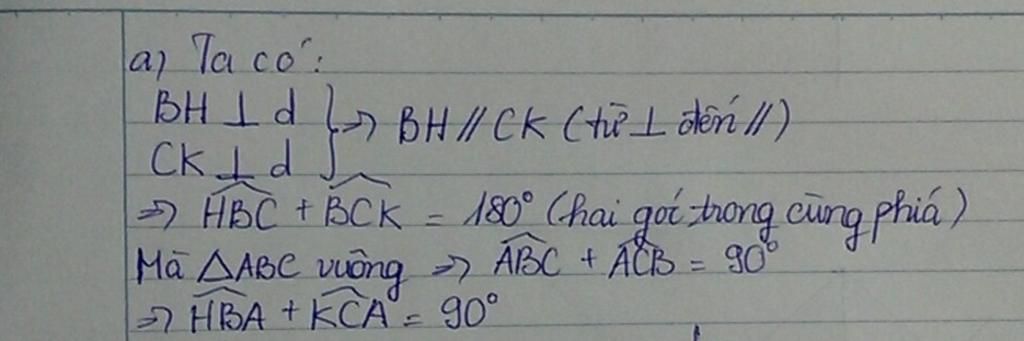 a) Ta có:
BH ⊥ d
CK ⊥ d } => BH // CK (từ ⊥ đến //)
=> \widehat{HBC} + \widehat{BCK} = 180° (hai goí trong cùng phiá)
Mà △ABC vuông => \widehat{ABC} + \widehat{ACB} = 90°
=> \widehat{HBA} + \widehat{KCA} = 90°